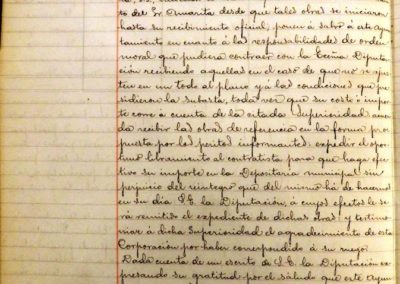 to del Sr. Omarita desde que tales obras se iniciaron
hasta su recibimiento oficial, ponen á salvo á este ayun
tamiento en cuanto á las responsabilidades de orden
moral que pudiera contraer con la Excma Diputa
ción recibiendo aquellas en el caso de que no se ajus
ten en un todo al plano y á las condiciones que pre
sidieron la subasta, toda vez que su costo é impor
te corre á cuenta de la citada Superioridad; acuer
da recibir las obras de referencia en la forma pro
puesta por los peritos informantes; expedir el opor
tuno libramiento al contratista para que haga efec
tivo su importe en la Depositaria municipal sin
perjuicio del reintegro que del mismo há de hacernos
en su dia S.E. la Diputación, á cuyos efectos le se
rá remitido el expediente de dichas obras y testimo
niar á dicha Superioridad el agradecimiento de esta
Corporación por haber correspondido á su ruego.
Dada cuenta de un escrito de S.E. la Diputación ex
presando su gratitud por el saludo que este Ayun